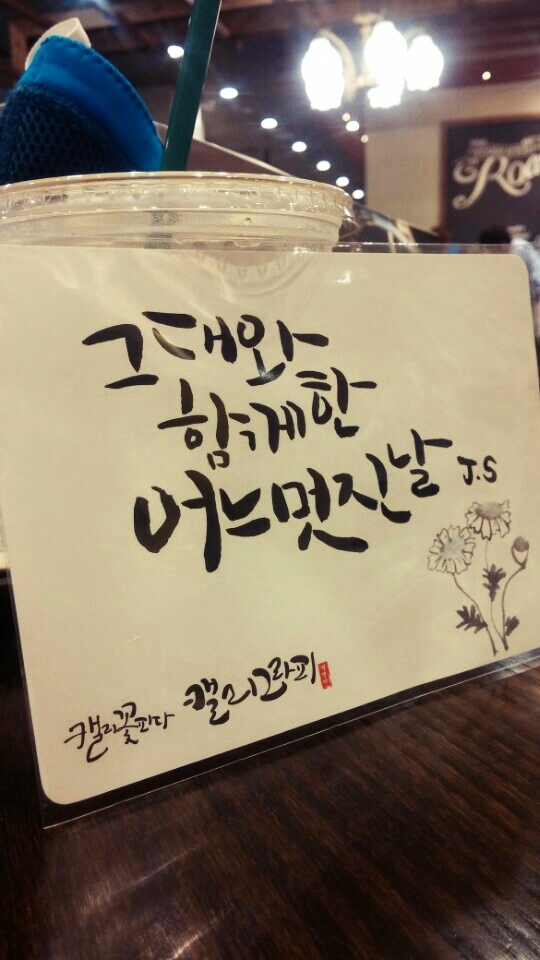 그대와
함께한
어느멋진날 J.S
캘리꽃피다 캘리그라피